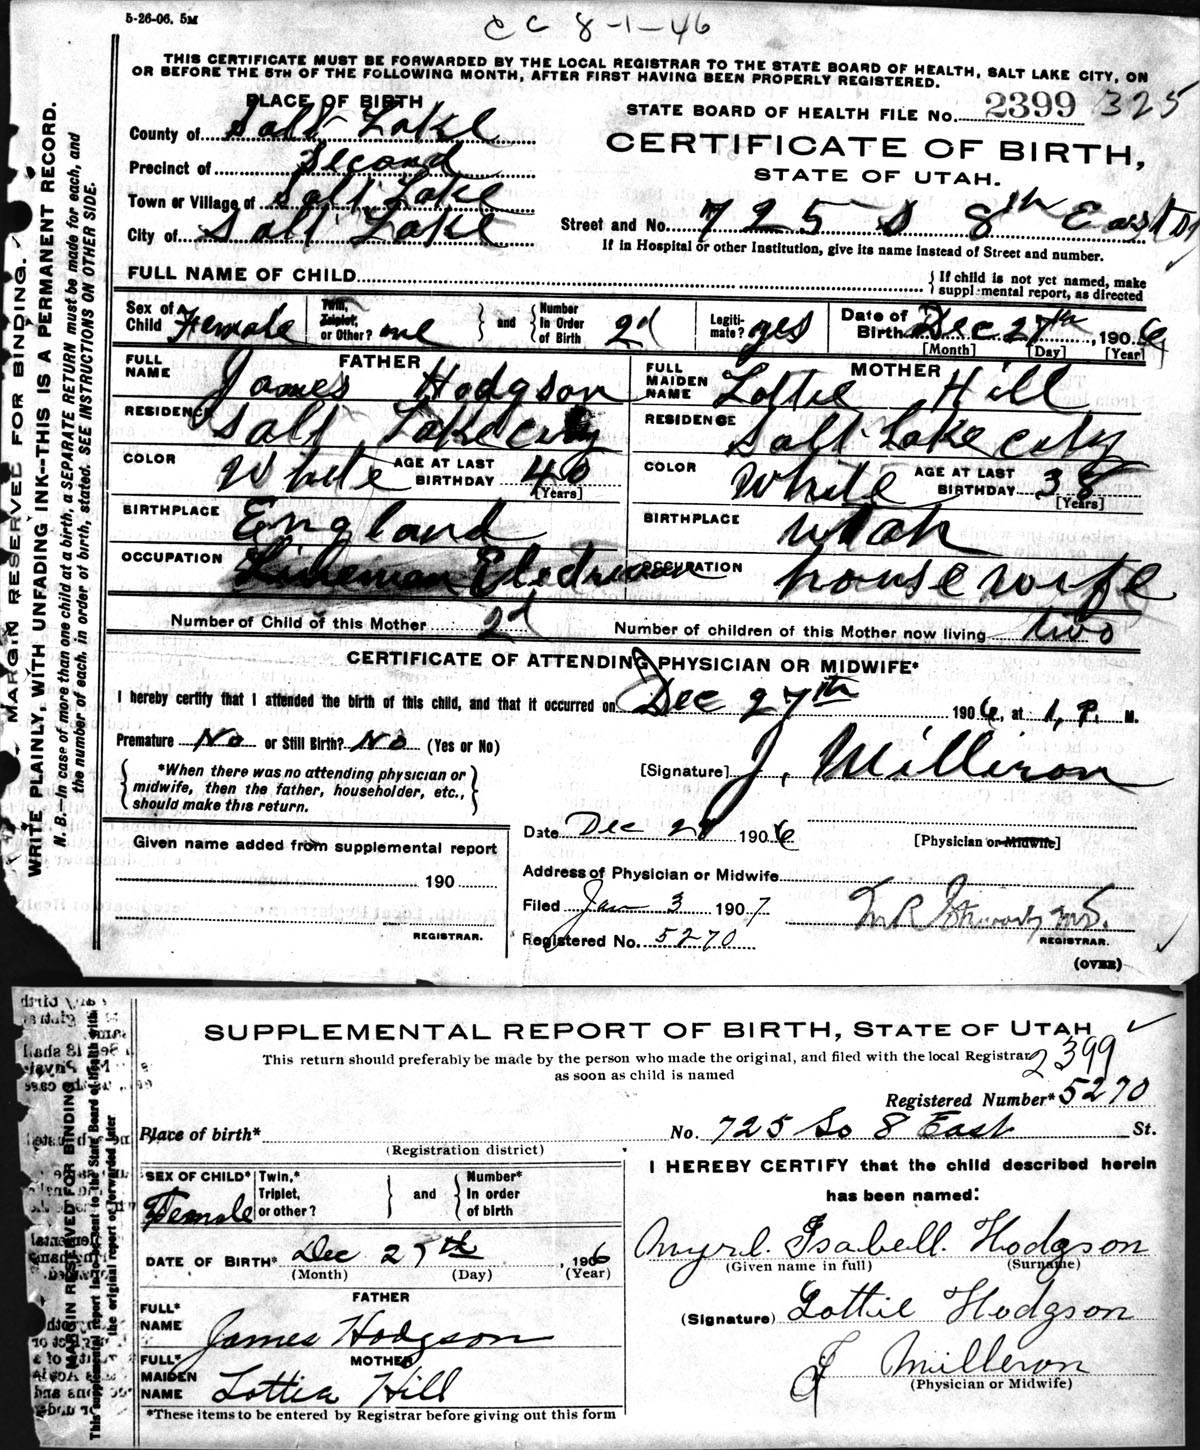 5-26-06. 5M
CC 8-1-46
THIS CERTIFICATE MUST BE FORWARDED BY THE LOCAL REGISTRAR TO THE STATE BOARD OF HEALTH, SALT LAKE CITY, ON
OR BEFORE THE 5TH OF THE FOLLOWING MONTH, AFTER FIRST HAVING BEEN PROPERLY REGISTERED.
MARGIN RESERVED FOR BINDING.
WRITE PLAINLY, WITH UNFADING INK--THIS IS A PERMANENT RECORD.
N. B.--In case of more than one child at a birth, a SEPARATE RETURN must be made for each, and
the number of each, in order of birth, stated. SEE INSTRUCTIONS ON OTHER SIDE.
PLACE OF BIRTH
County of Salt Lake
Precinct of Second
Town or Village of Salt Lake
City of Salt Lake
STATE BOARD OF HEALTH FILE No. 2399 325
CERTIFICATE OF BIRTH,
STATE OF UTAH.
Street and No. 725 S 8th East
If in Hospital or other Institution, give its name instead of Street and number.
FULL NAME OF CHILD
{ If child is not yet named, make
supplemental report, as directed
Sex of Child Female
Twin, Triplet, or Other? one } and { Number In Order of Birth 2d
Legitimate? yes
Date of Birth Dec 27th, 1906
[Month] [Day] [Year]
FATHER
FULL NAME James Hodgson
RESIDENCE Salt Lake City
COLOR White AGE AT LAST BIRTHDAY 40
[Years]
BIRTHPLACE England
OCCUPATION Lineman Electrician
MOTHER
FULL MAIDEN NAME Lottie Hill
RESIDENCE Salt Lake City
COLOR White AGE AT LAST BIRTHDAY 38
[Years]
BIRTHPLACE Utah
OCCUPATION housewife
Number of Child of this Mother 2d Number of children of this Mother now living two
CERTIFICATE OF ATTENDING PHYSICIAN OR MIDWIFE*
I hereby certify that I attended the birth of this child, and that it occurred on Dec 27th 1906, at 1, P. M.
Premature No or Still Birth? No (Yes or No)
{ *When there was no attending physician or
midwife, then the father, householder, etc.,
should make this return. }
[Signature] J. Milliron
Date Dec 27 1906
[Physician or Midwife]
Given name added from supplemental report
190
REGISTRAR.
Address of Physician or Midwife
Filed Jan 3 1907
Registered No. 5270
REGISTRAR.
(OVER)
SUPPLEMENTAL REPORT OF BIRTH, STATE OF UTAH
This return should preferably be made by the person who made the original, and filed with the local Registrar
as soon as child is named
2399
Registered Number* 5270
MARGIN RESERVED FOR BINDING
Place of birth*
(Registration district)
No. 725 So 8 East St.
SEX OF CHILD* Female
Twin,* Triplet, or other? } and { Number* In order of birth
DATE OF BIRTH* Dec 27th, 1906
(Month) (Day) (Year)
FATHER
FULL* NAME James Hodgson
MOTHER
FULL* MAIDEN NAME Lottie Hill
*These items to be entered by Registrar before giving out this form
I HEREBY CERTIFY that the child described herein
has been named:
Myrl. Isabell. Hodgson
(Given name in full) (Surname)
(Signature) Lottie Hodgson
J Milleron
(Physician or Midwife)